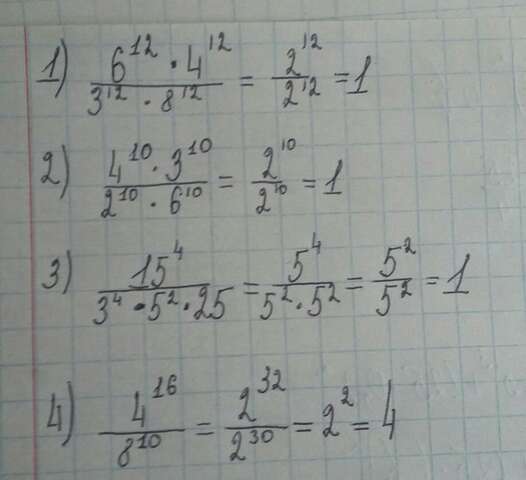 1) \frac{6^{12} \cdot 4^{12}}{3^{12} \cdot 8^{12}} = \frac{2^{12}}{2^{12}} = 1
2) \frac{4^{10} \cdot 3^{10}}{2^{10} \cdot 6^{10}} = \frac{2^{10}}{2^{10}} = 1
3) \frac{15^{4}}{3^{4} \cdot 5^{2} \cdot 25} = \frac{5^{4}}{5^{2} \cdot 5^{2}} = \frac{5^{2}}{5^{2}} = 1
4) \frac{4^{16}}{8^{10}} = \frac{2^{32}}{2^{30}} = 2^{2} = 4